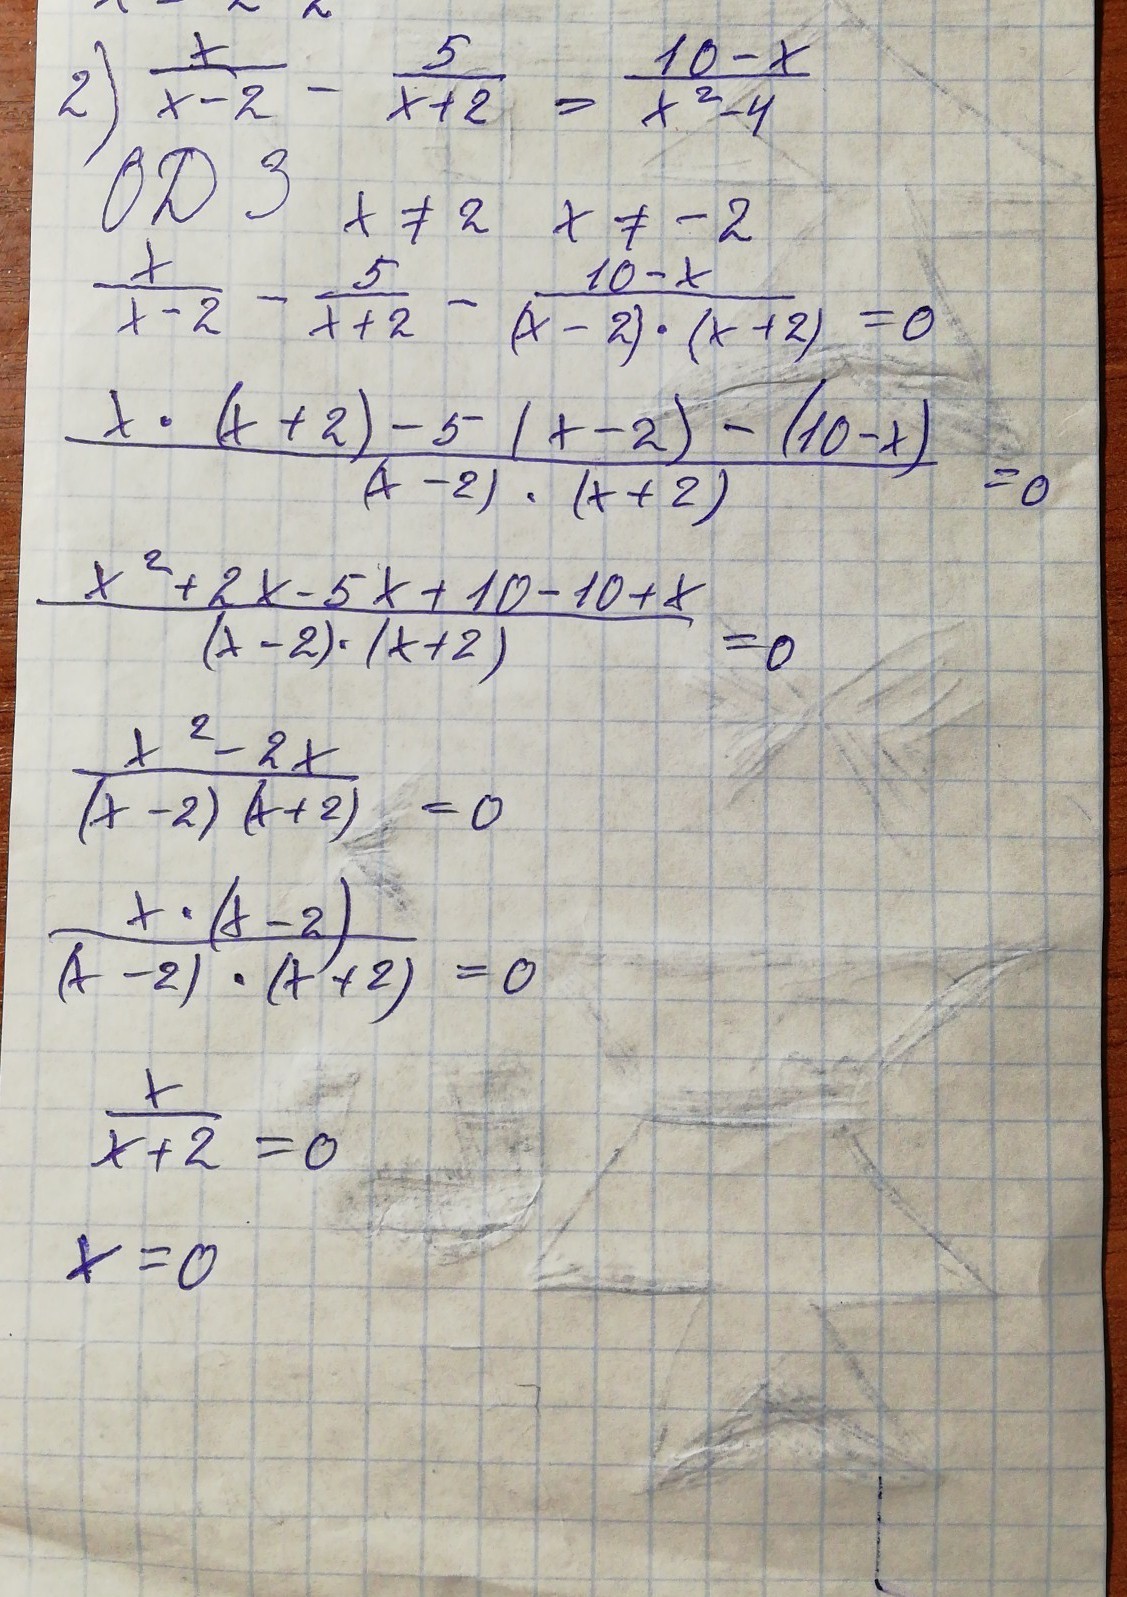 2) x/(x-2) - 5/(x+2) = (10-x)/(x²-4)
ОДЗ
x ≠ 2 x ≠ -2
x/(x-2) - 5/(x+2) - (10-x)/((x-2)·(x+2)) = 0
(x·(x+2)-5(x-2)-(10-x))/((x-2)·(x+2)) = 0
(x²+2x-5x+10-10+x)/((x-2)·(x+2)) = 0
(x²-2x)/((x-2)(x+2)) = 0
(x·(x-2))/((x-2)·(x+2)) = 0
x/(x+2) = 0
x = 0